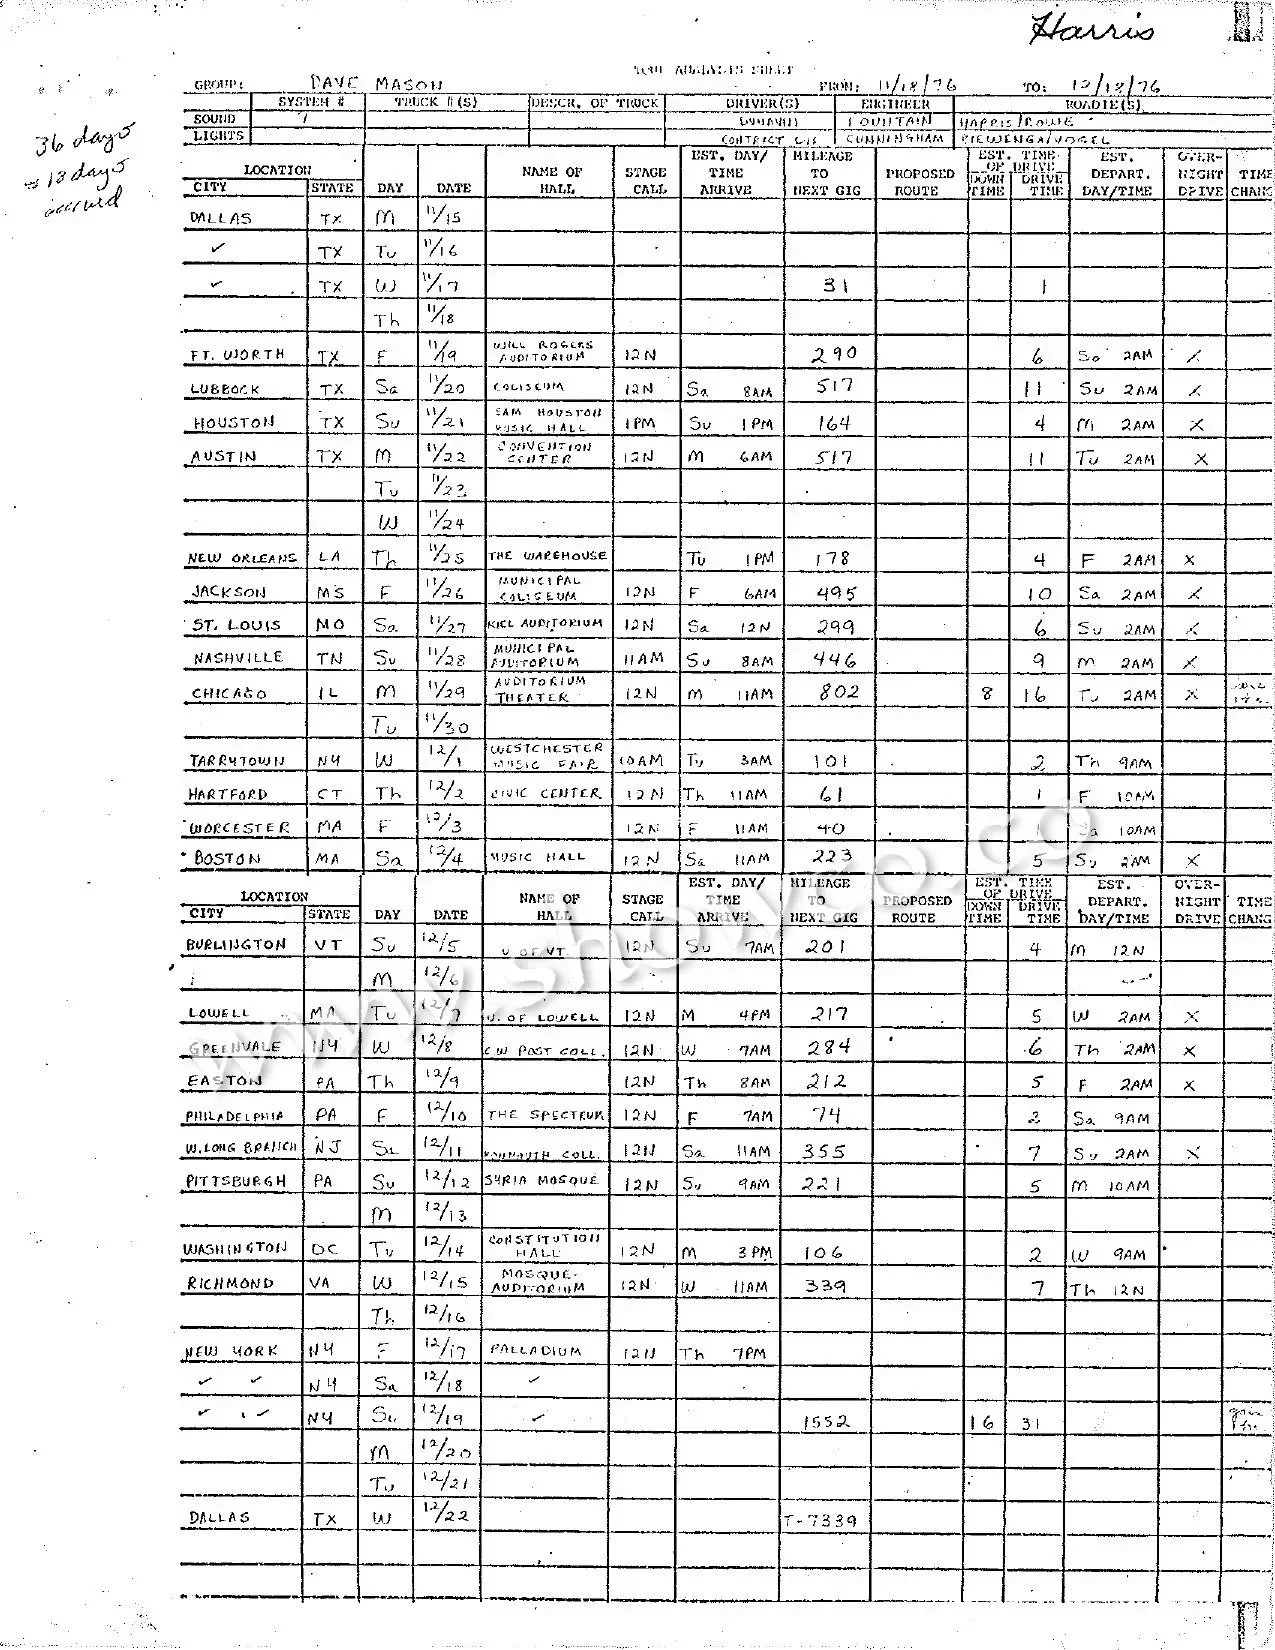 Harris
TOUR ANALYSIS SHEET
GROUP: DAVE MASON FROM: 11/18/76 TO: 12/18/76
SYSTEM # TRUCK #(S) DESCR. OF TRUCK DRIVER(S) ENGINEER ROADIE(S)
SOUND 7 FOUNTAIN HARRIS/ROWE
LIGHTS CUNNINGHAM
36 days
= 13 days
accrued
LOCATION EST. DAY/ MILEAGE EST. TIME EST. OVER-
NAME OF STAGE TIME TO PROPOSED OF DRIVE DEPART. NIGHT TIME
CITY STATE DAY DATE HALL CALL ARRIVE NEXT GIG ROUTE DOWN TIME DRIVE TIME DAY/TIME DRIVE CHANG
DALLAS TX M 11/15
✓ TX Tu 11/16
✓ TX W 11/17 31 1
Th 11/18
FT. WORTH TX F 11/19 WILL ROGERS AUDITORIUM 12N 290 6 Sa 2AM X
LUBBOCK TX Sa 11/20 COLISEUM 12N Sa 8AM 517 11 Su 2AM X
HOUSTON TX Su 11/21 SAM HOUSTON MUSIC HALL 1PM Su 1PM 164 4 M 2AM X
AUSTIN TX M 11/22 CONVENTION CENTER 12N M 6AM 517 11 Tu 2AM X
Tu 11/23
W 11/24
NEW ORLEANS LA Th 11/25 THE WAREHOUSE Tu 1PM 178 4 F 2AM X
JACKSON MS F 11/26 MUNICIPAL COLISEUM 12N F 6AM 495 10 Sa 2AM X
ST. LOUIS MO Sa 11/27 KIEL AUDITORIUM 12N Sa 12N 299 6 Su 2AM X
NASHVILLE TN Su 11/28 MUNICIPAL AUDITORIUM 11AM Su 8AM 446 9 M 2AM X
CHICAGO IL M 11/29 AUDITORIUM THEATER 12N M 11AM 802 8 16 Tu 2AM X
Tu 11/30
TARRYTOWN NY W 12/1 WESTCHESTER MUSIC FAIR 10AM Tu 3AM 101 2 Th 9AM
HARTFORD CT Th 12/2 CIVIC CENTER 12N Th 11AM 61 1 F 10AM
WORCESTER MA F 12/3 12N F 11AM 40 1 Sa 10AM
BOSTON MA Sa 12/4 MUSIC HALL 12N Sa 11AM 223 5 Su 2AM X
LOCATION EST. DAY/ MILEAGE EST. TIME EST. OVER-
NAME OF STAGE TIME TO PROPOSED OF DRIVE DEPART. NIGHT TIME
CITY STATE DAY DATE HALL CALL ARRIVE NEXT GIG ROUTE DOWN TIME DRIVE TIME DAY/TIME DRIVE CHANG
BURLINGTON VT Su 12/5 U OF VT. 12N Su 7AM 201 4 M 12N
M 12/6
LOWELL MA Tu 12/7 U. OF LOWELL 12N M 4PM 217 5 W 2AM X
GREENVALE NY W 12/8 CW POST COLL. 12N W 7AM 284 6 Th 2AM X
EASTON PA Th 12/9 12N Th 8AM 212 5 F 2AM X
PHILADELPHIA PA F 12/10 THE SPECTRUM 12N F 7AM 74 2 Sa 9AM
W. LONG BRANCH NJ Sa 12/11 MONMOUTH COLL. 12N Sa 11AM 355 7 Su 2AM X
PITTSBURGH PA Su 12/12 SYRIA MOSQUE 12N Su 9AM 221 5 M 10AM
M 12/13
WASHINGTON DC Tu 12/14 CONSTITUTION HALL 12N M 3PM 106 2 W 9AM
RICHMOND VA W 12/15 MOSQUE AUDITORIUM 12N W 11AM 339 7 Th 12N
Th 12/16
NEW YORK NY F 12/17 PALLADIUM 12N Th 7PM
✓ ✓ NY Sa 12/18 ✓
✓ ✓ NY Su 12/19 ✓ 1552 16 31
M 12/20
Tu 12/21
DALLAS TX W 12/22 T-7339
www.showco.co